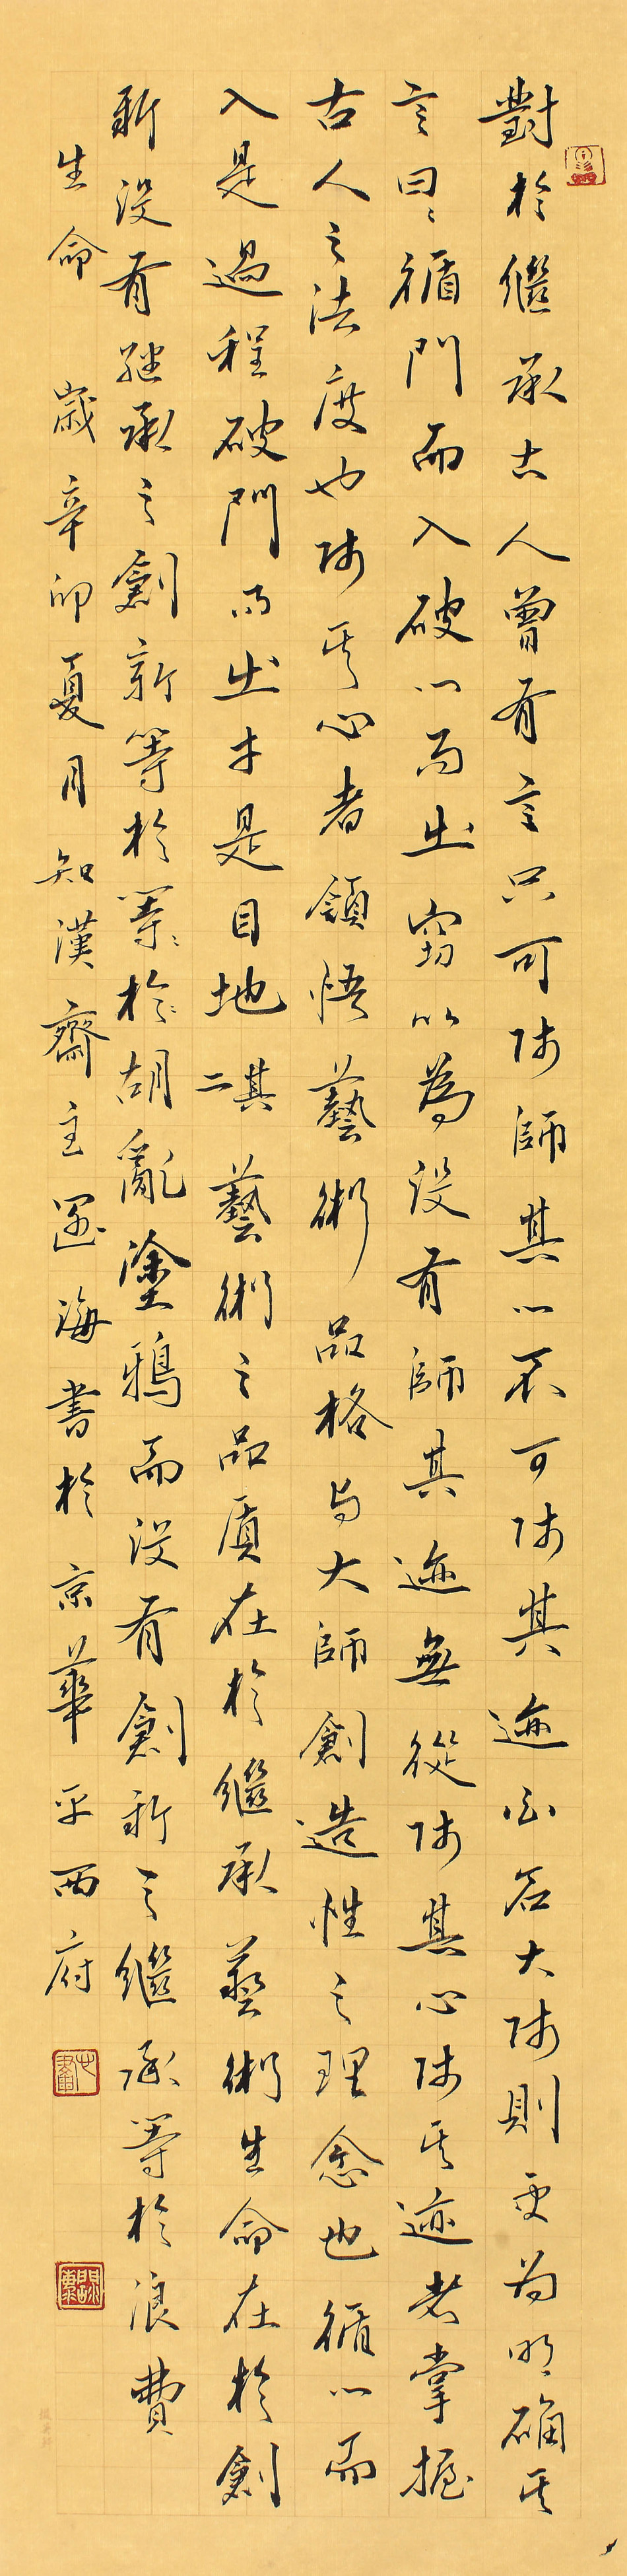 對於繼承古人曾有言只可師師其心不可師其迹白石大師則更為明確其
言曰:循門而入破門而出竊以為没有師其迹無從師其心師其迹者掌握
古人之法度也師其心者領悟藝術品格与大師創造性之理念也循門而
入是過程破門而出才是目地二其藝術之品質在於繼承藝術生命在於創
新没有继承之創新等於等:於:胡亂塗鴉而没有創新之繼承等於浪費
生命 歲辛卯夏月知漢齋主運海書於京華平西府